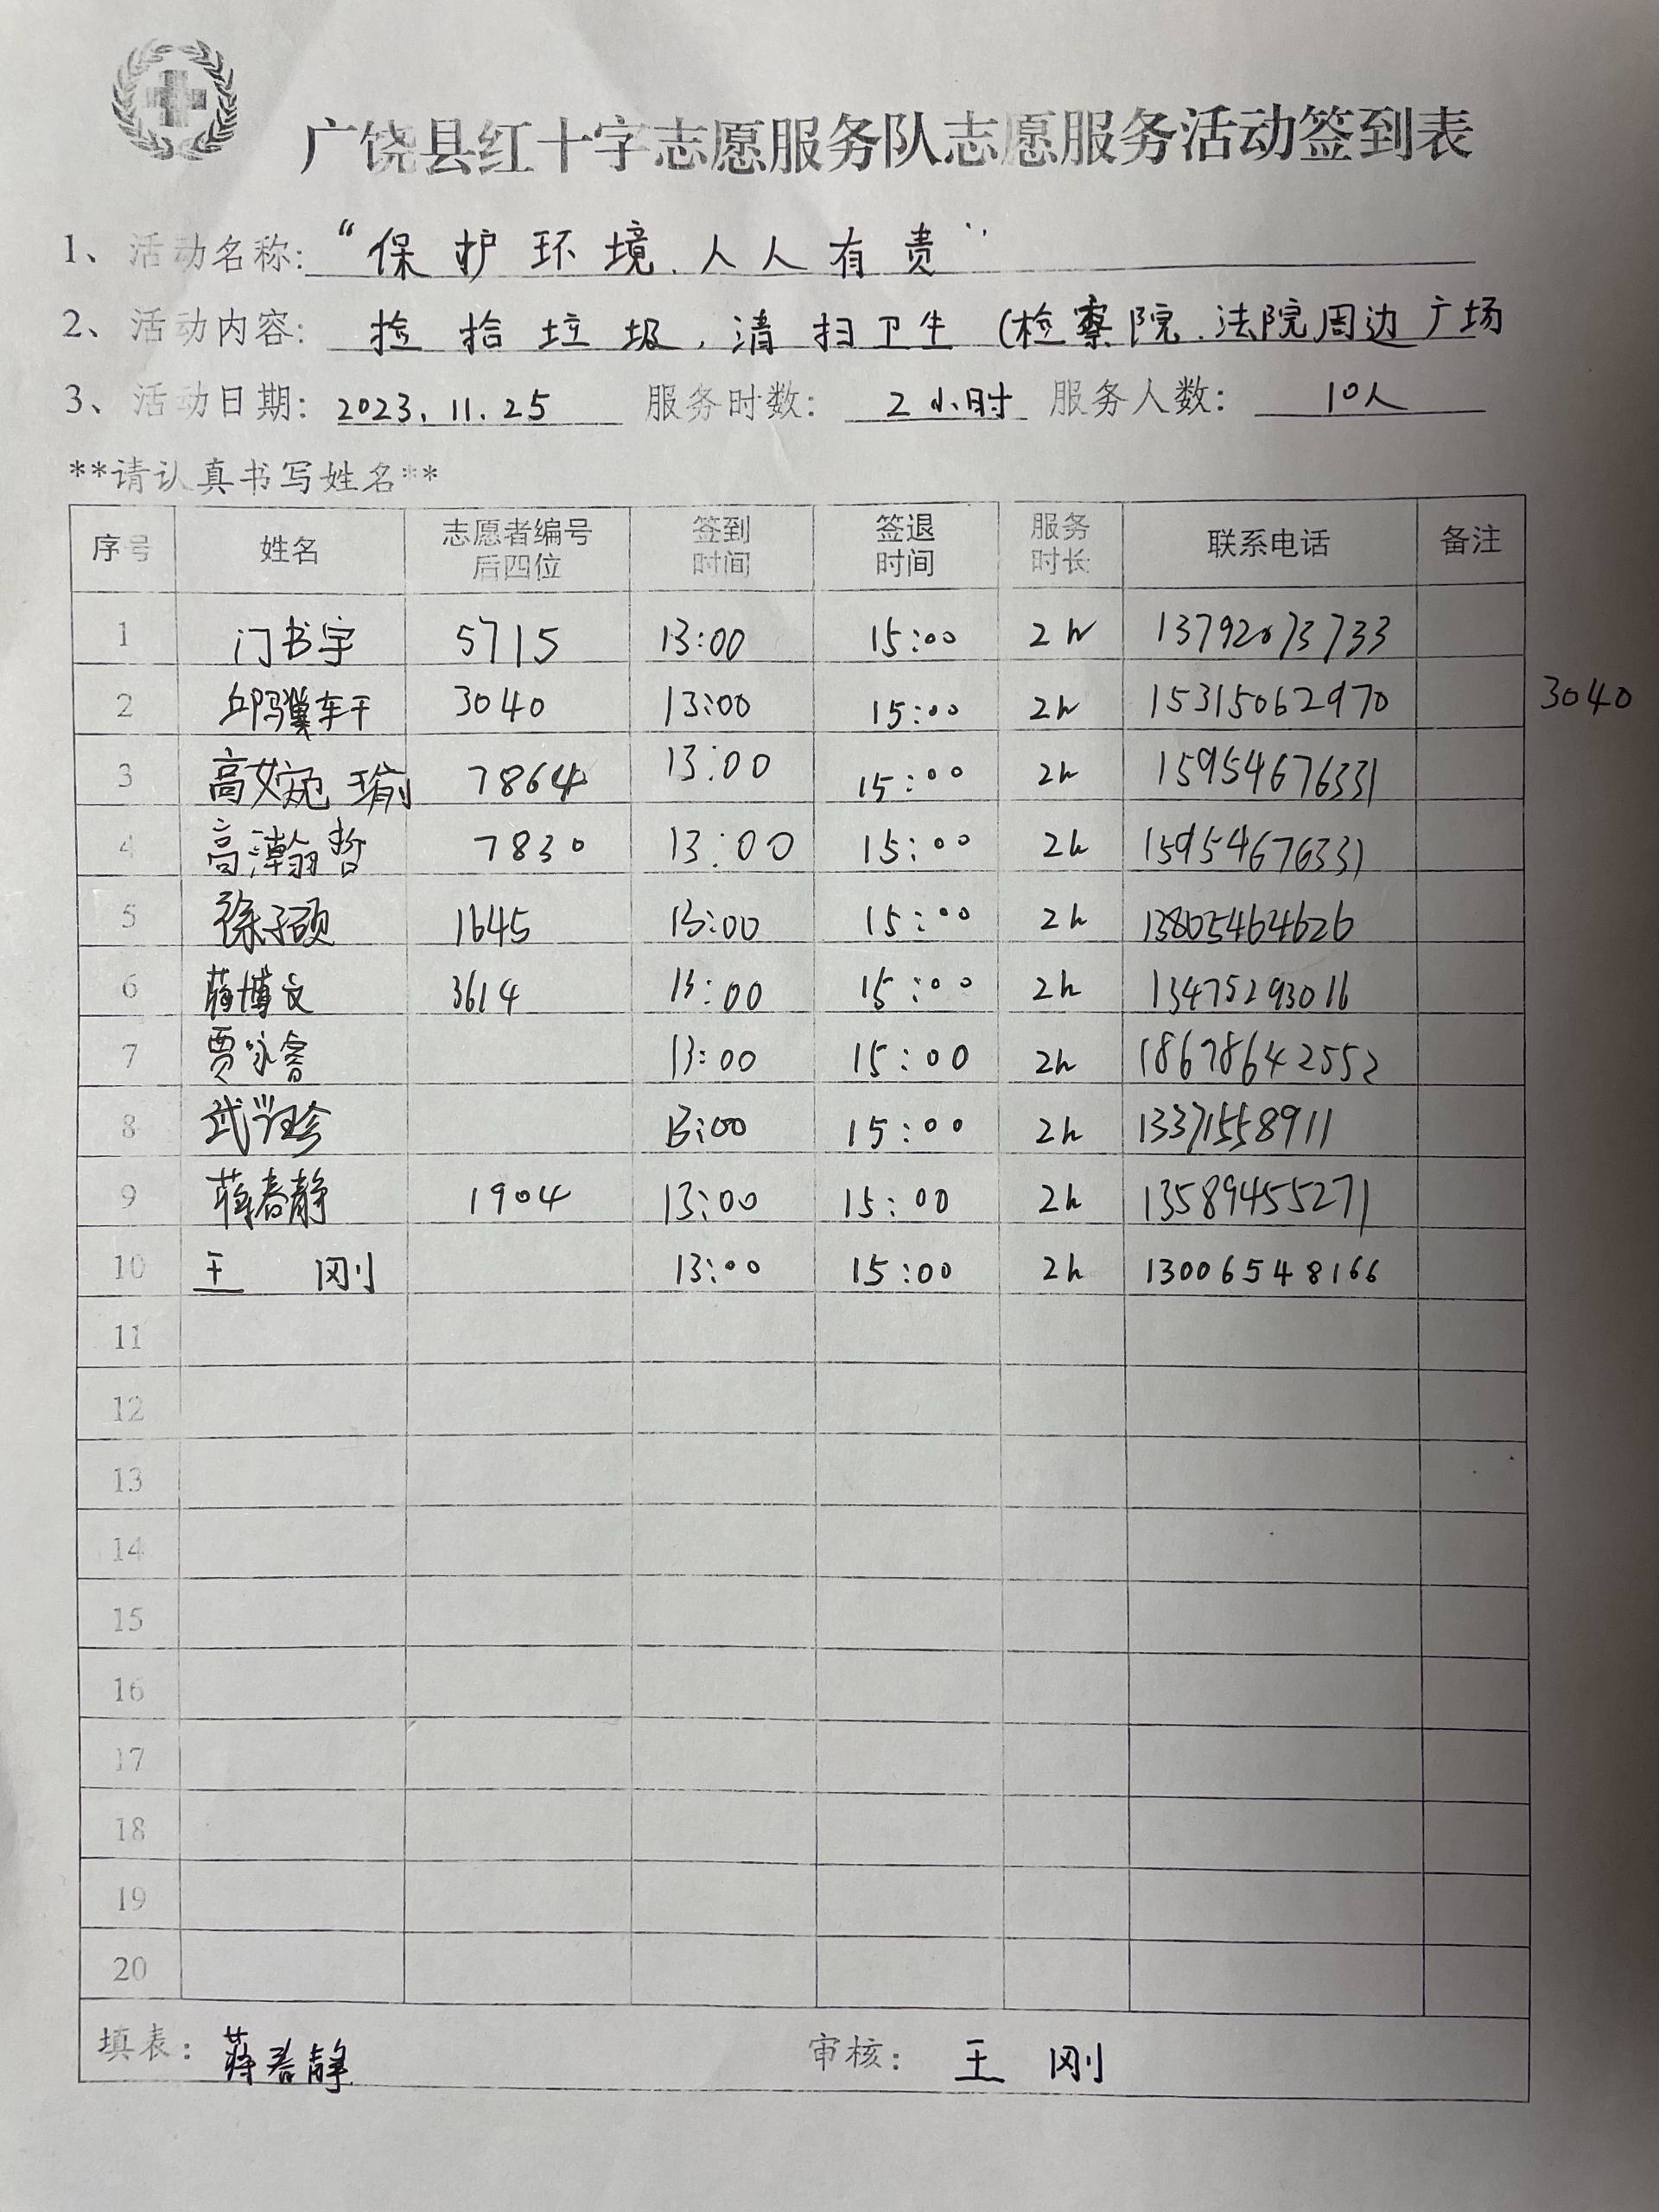 广饶县红十字志愿服务队志愿服务活动签到表
1、活动名称:“保护环境.人人有责”
2、活动内容:捡拾垃圾,清扫卫生(检察院.法院周边广场
3、活动日期:2023.11.25 服务时数:2小时 服务人数:10人
**请认真书写姓名**
序号 姓名 志愿者编号后四位 签到时间 签退时间 服务时长 联系电话 备注
1 门书宇 5715 13:00 15:00 2h 13792073733
2 邱骥轩 3040 13:00 15:00 2h 15315062970 3040
3 高婉瑜 7864 13:00 15:00 2h 15954676331
4 高瀚哲 7830 13:00 15:00 2h 15954676331
5 徐子硕 1645 13:00 15:00 2h 13805464626
6 蒋博文 3614 13:00 15:00 2h 13475293016
7 贾咏睿 13:00 15:00 2h 18678642552
8 武 13:00 15:00 2h 13371558911
9 蒋春静 1904 13:00 15:00 2h 13589455271
10 王刚 13:00 15:00 2h 13006548166
11
12
13
14
15
16
17
18
19
20
填表:蒋春静 审核:王刚